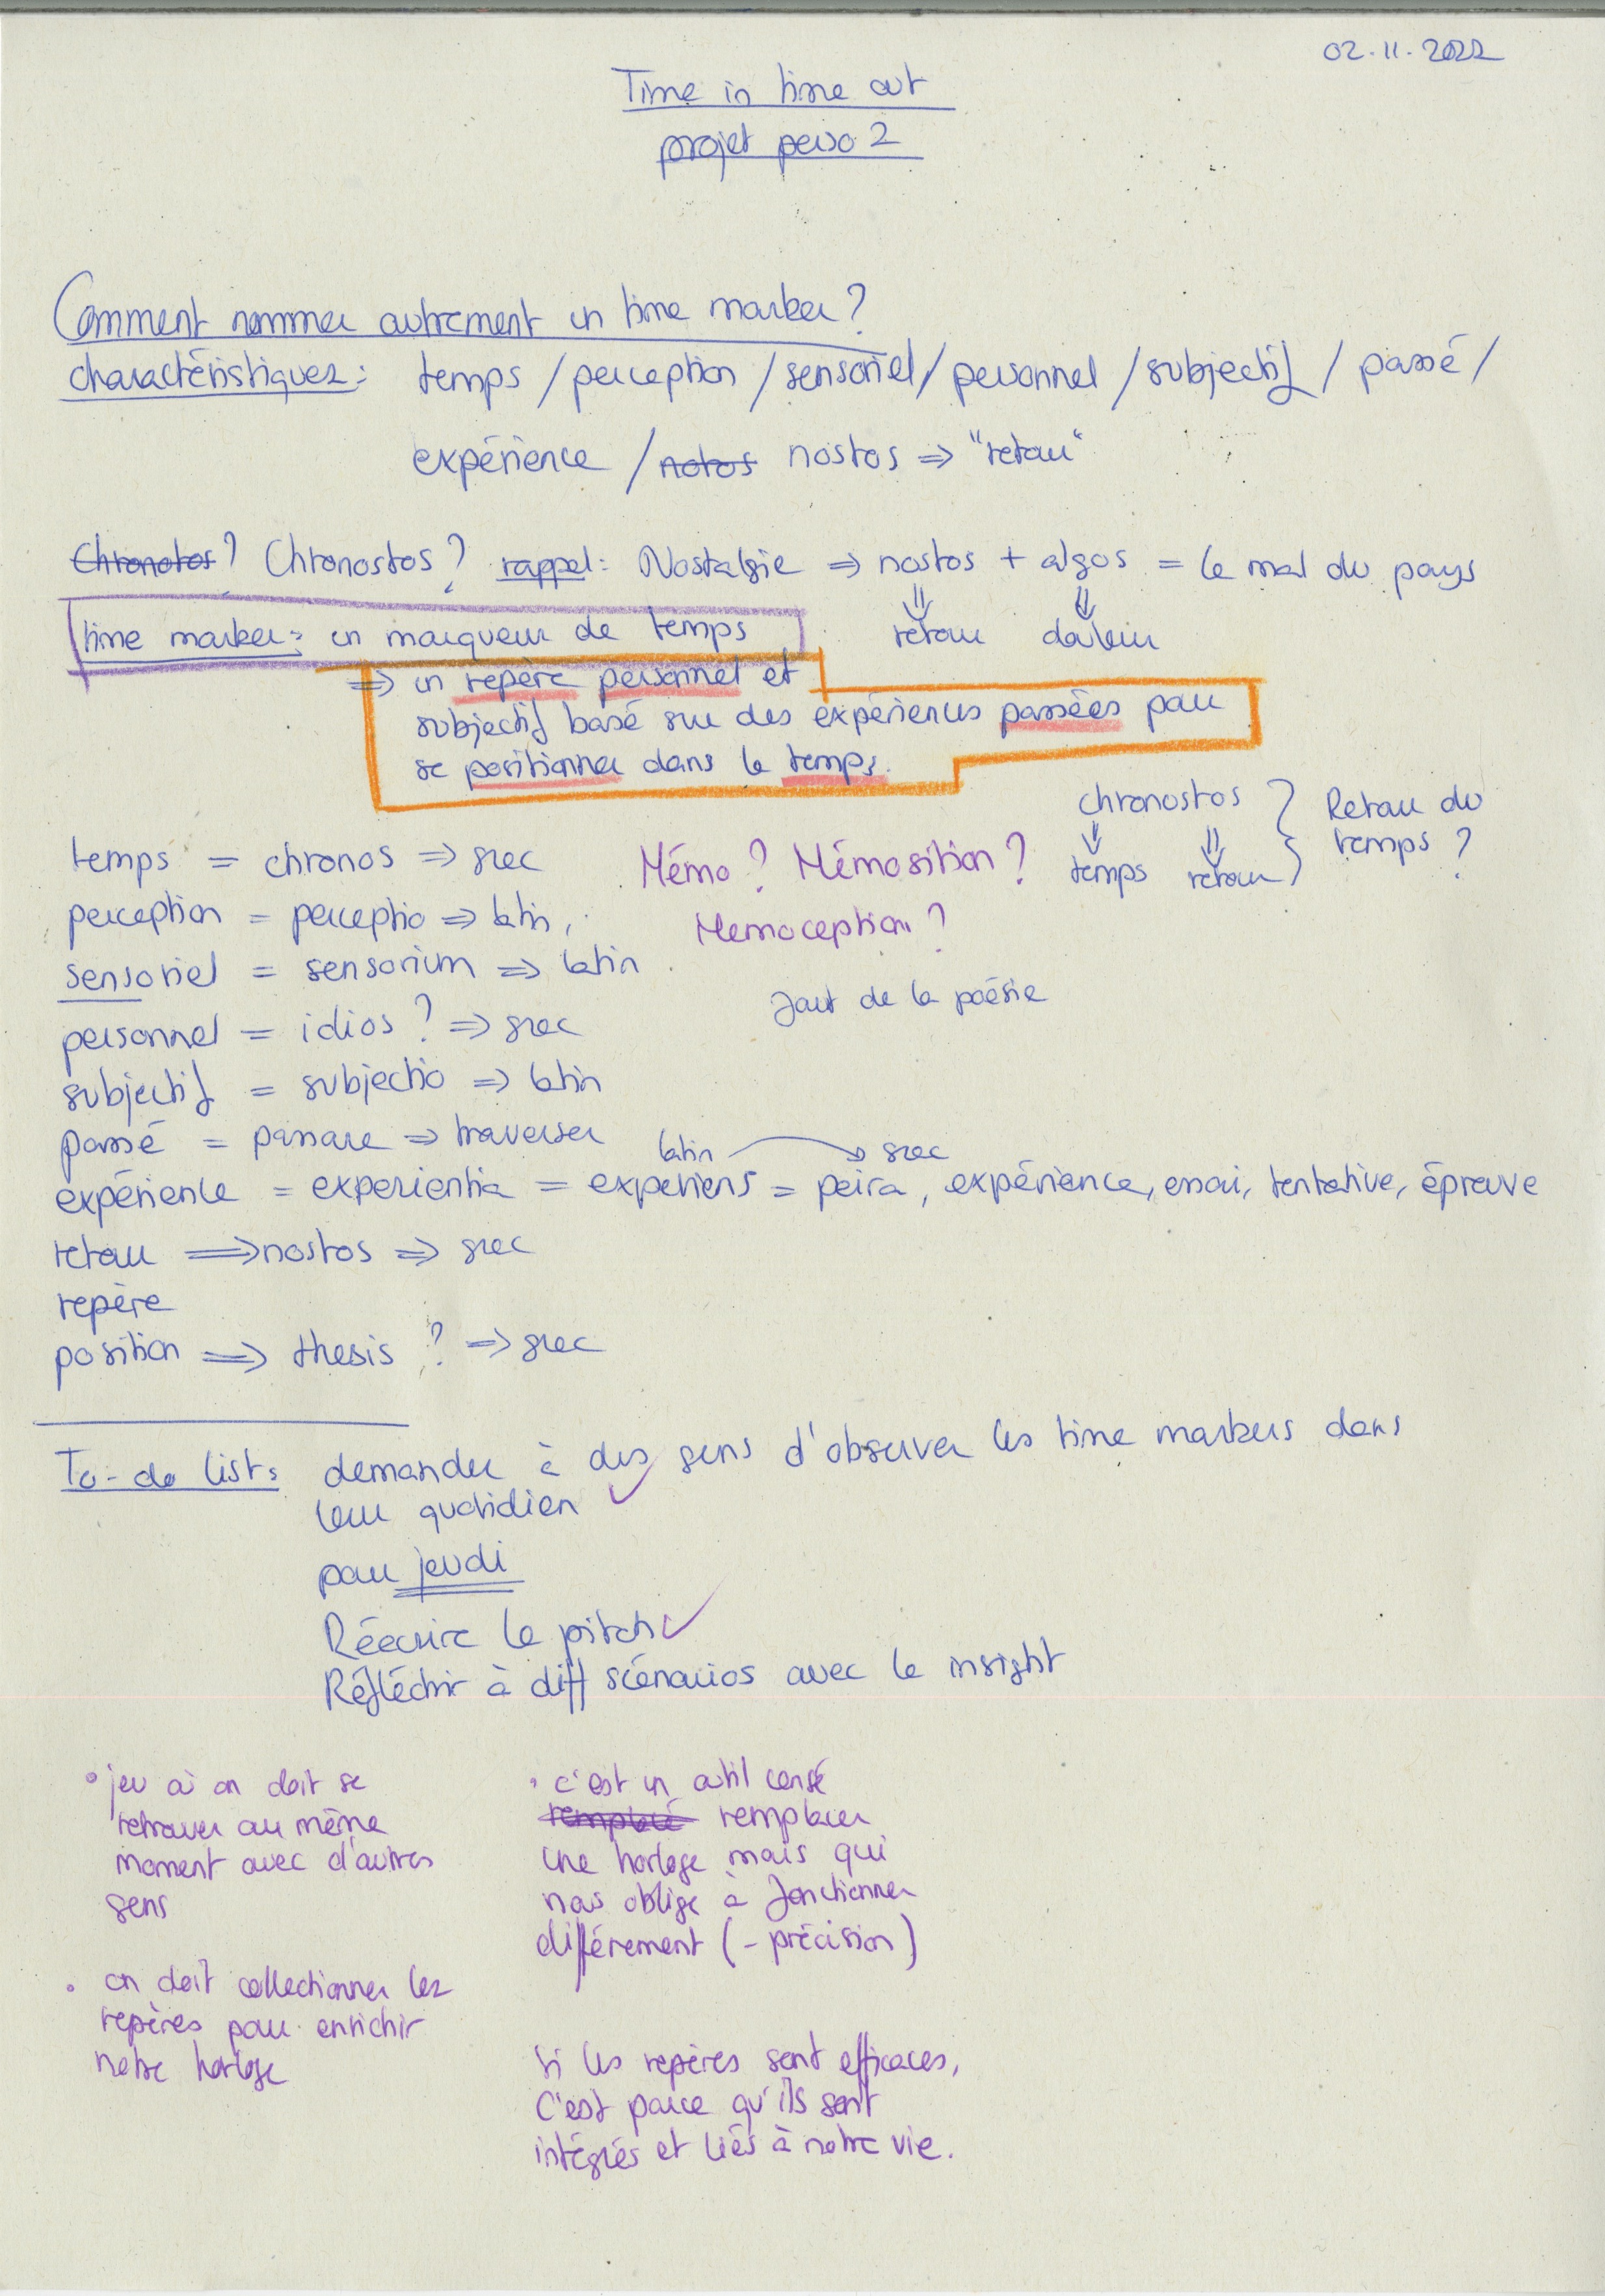 02.11.2022
Time in time out
projet perso 2
Comment nommer autrement un time marker?
charactéristiques: temps / perception / sensoriel / personnel / subjectif / passé /
expérience / notos nostos => "retour"
Chronotos? Chronostos? rappel: Nostalgie => nostos + algos = le mal du pays
retour douleur
time marker: un marqueur de temps
=> un repère personnel et
subjectif basé sur des expériences passées pour
se positionner dans le temps.
chronostos } Retour du
temps retour } temps ?
temps = chronos => grec
Mémo? Mémosition?
perception = perceptio => latin
Memoception?
sensoriel = sensorium => latin
faut de la poésie
personnel = idios ? => grec
subjectif = subjectio => latin
passé = passare => traverser
latin grec
expérience = experientia = experiens = peira, expérience, essai, tentative, épreuve
retour => nostos => grec
repère
position => thesis ? => grec
To-do list: demander à des gens d'observer les time markers dans
leur quotidien ✓
pour jeudi
Réécrire le pitch ✓
Réfléchir à diff scénarios avec le insight
• jeu où on doit se
retrouver au même
moment avec d'autres
gens
• on doit collectionner les
repères pour enrichir
notre horloge
• c'est un outil censé
remplacé remplacer
une horloge mais qui
nous oblige à fonctionner
différement (- précision)
Si les repères sont efficaces,
C'est parce qu'ils sont
intégrés et liés à notre vie.